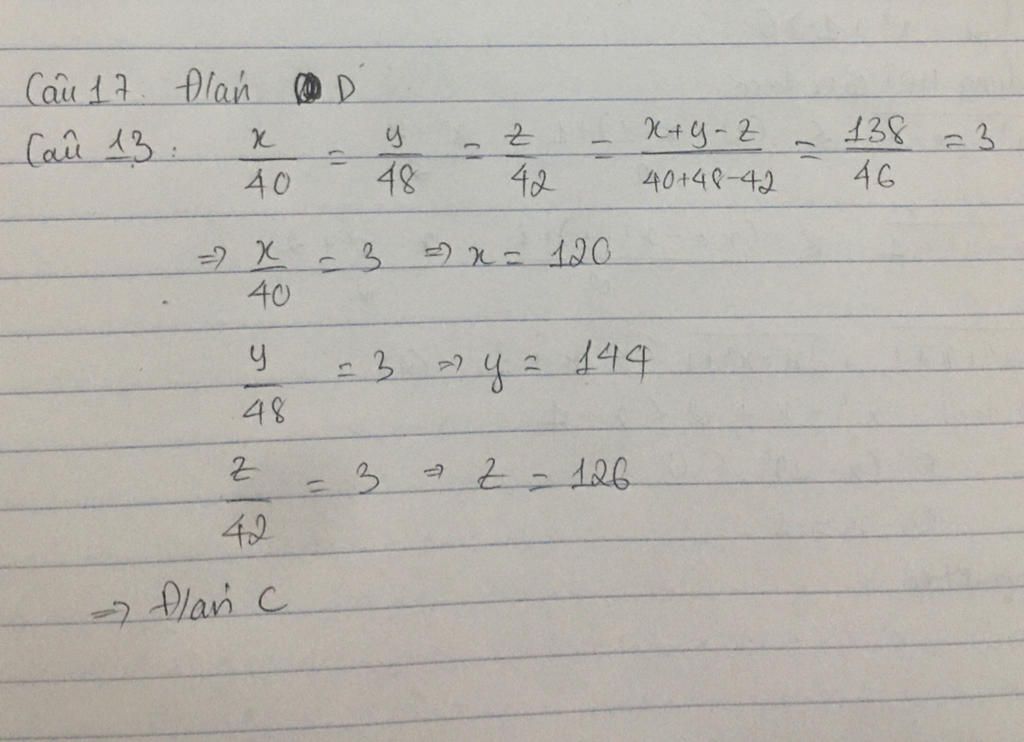 Câu 17. Đ/án D
Câu 13: x/40 = y/48 = z/42 = (x+y-z)/(40+48-42) = 138/46 = 3
=> x/40 = 3 => x = 120
y/48 = 3 => y = 144
z/42 = 3 => z = 126
=> Đ/án C